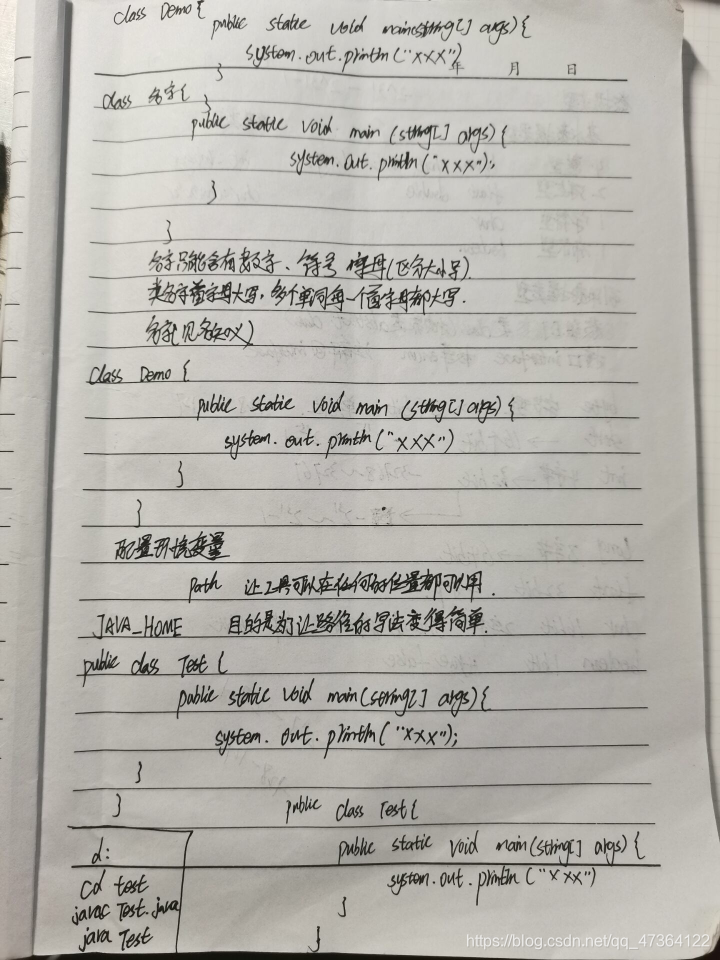 class Demo {
public static void main(string[] args){
system.out.println("xxx")
年 月 日
}
class 名字 {
}
public static void main (string[] args) {
system.out.println("xxx");
}
}
名字只能含有数字、符号 字母(区分大小写).
类名字首字母大写,多个单词每一个首字母都大写.
名字(见名知义)
class Demo {
public static void main (string[] args) {
system. out. println ("xxx")
}
}
配置环境变量
path 让工具可以在任何的位置都可以用.
JAVA_HOME 目的是为了让路径的写法变得简单.
public class Test {
public static void main(string[] args) {
system. out. println( "xxx");
}
}
public class Test {
public static void main(string[] args) {
system.out.println ("xxx")
}
}
d:
cd test
javac Test.java
java Test
https://blog.csdn.net/qq_47364122